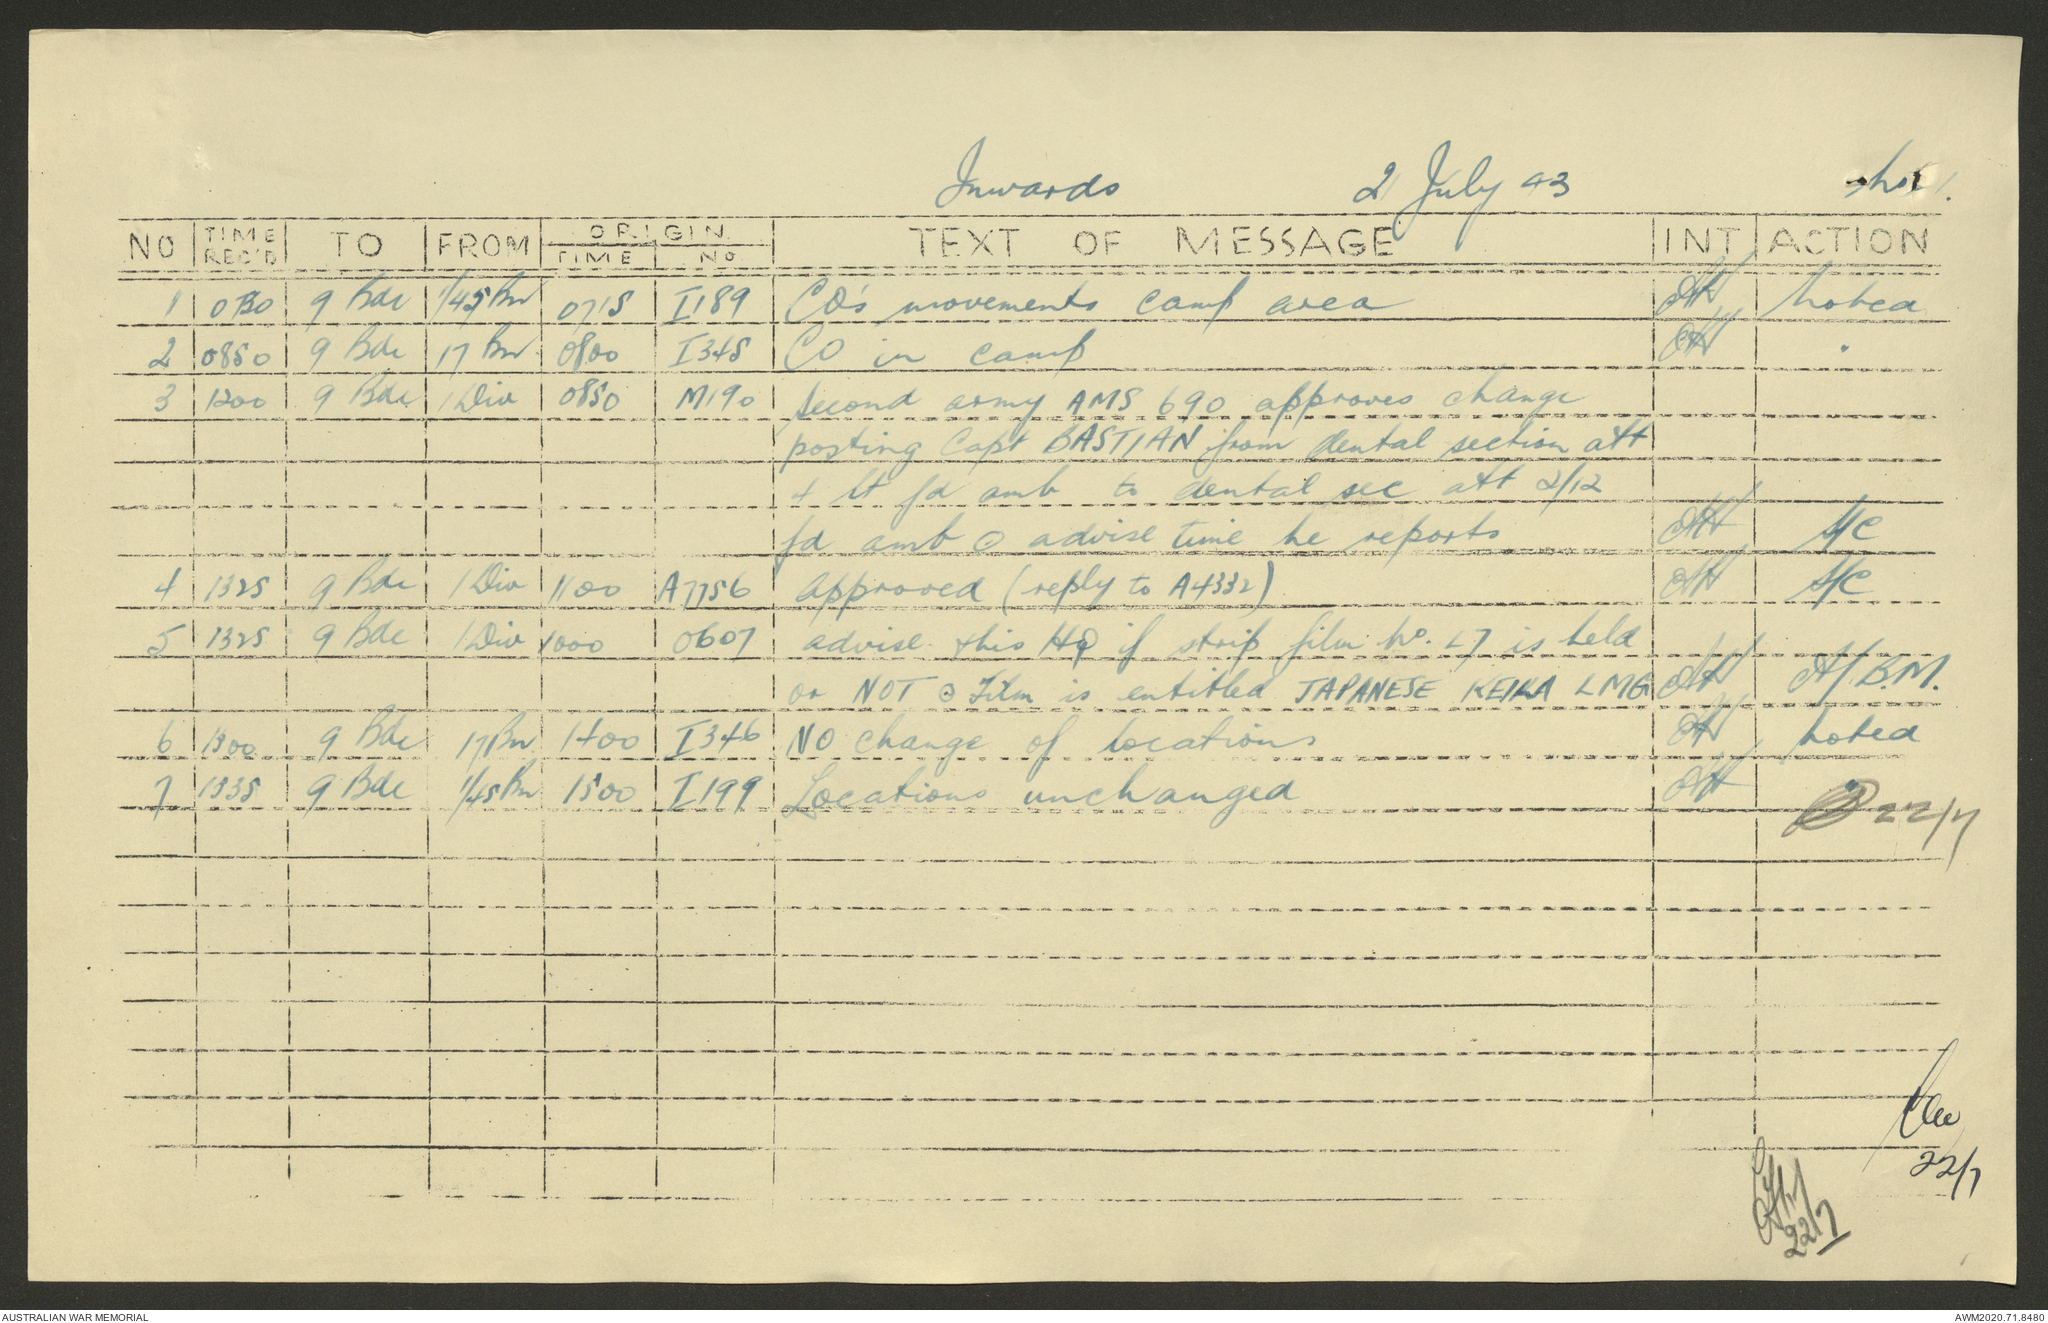 Inwards 21 July 43 Sheet 1.
NO TIME REC'D TO FROM ORIGIN TIME NO TEXT OF MESSAGE INT ACTION
1 0730 9 Bde 1/45 Bn 0715 I189 CO's movements camp area Noted
2 0850 9 Bde 17 Bn 0800 I345 CO in camp "
3 1200 9 Bde 1 Div 0850 M190 Second army AMS 690 approves change
posting Capt BASTIAN from dental section att
4 lt fd amb to dental sec att 2/12
fd amb ⊙ advise time he reports S/C
4 1325 9 Bde 1 Div 1100 A7756 approved (reply to A4332) S/C
5 1325 9 Bde 1 Div 1000 0607 advise this HQ if strip film No. L7 is held
or NOT ⊙ Film is entitled JAPANESE KEIKA LMG A/B.M.
6 1500 9 Bde 17 Bn 1400 I346 NO change of locations Noted
7 1535 9 Bde 1/45 Bn 1500 I199 Locations unchanged "
22/7
22/7
22/7
AUSTRALIAN WAR MEMORIAL AWM2020.71.8480